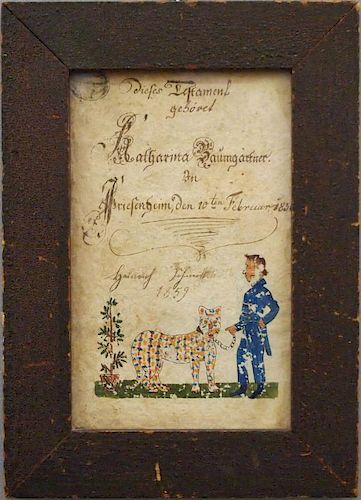 Dieses Testament
gehöret
Katharina Baumgärtner.
in
Friesenheim, den 10ten Februar
Heinrich
1859